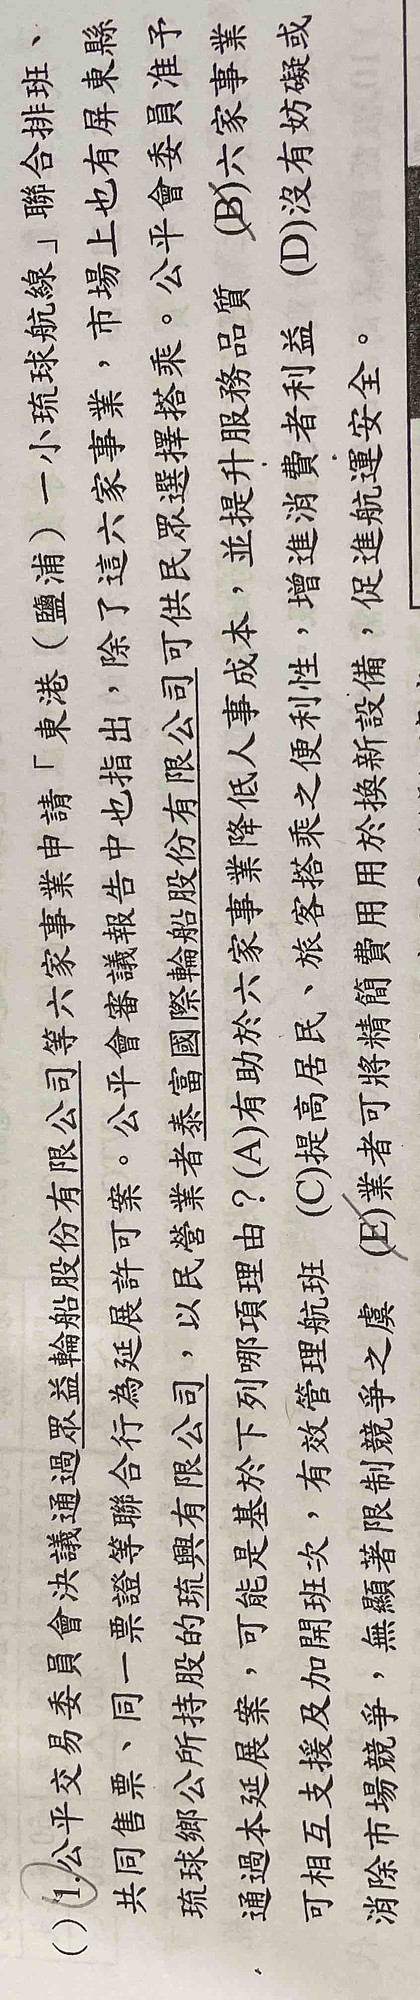 ( ) 1.公平交易委員會決議通過眾益輪船股份有限公司等六家事業申請「東港（鹽浦）—小琉球航線」聯合排班、
共同售票、同一票證等聯合行為延展許可案。公平會審議報告中也指出，除了這六家事業，市場上也有屏東縣
琉球鄉公所持股的琉興有限公司，以民營業者泰富國際輪船股份有限公司可供民眾選擇搭乘。公平會委員准予
通過本延展案，可能是基於下列哪項理由？(A)有助於六家事業降低人事成本，並提升服務品質 (B)六家事業
可相互支援及加開班次，有效管理航班 (C)提高居民、旅客搭乘之便利性，增進消費者利益 (D)沒有妨礙或
消除市場競爭，無顯著限制競爭之虞 (E)業者可將精簡費用用於換新設備，促進航運安全。